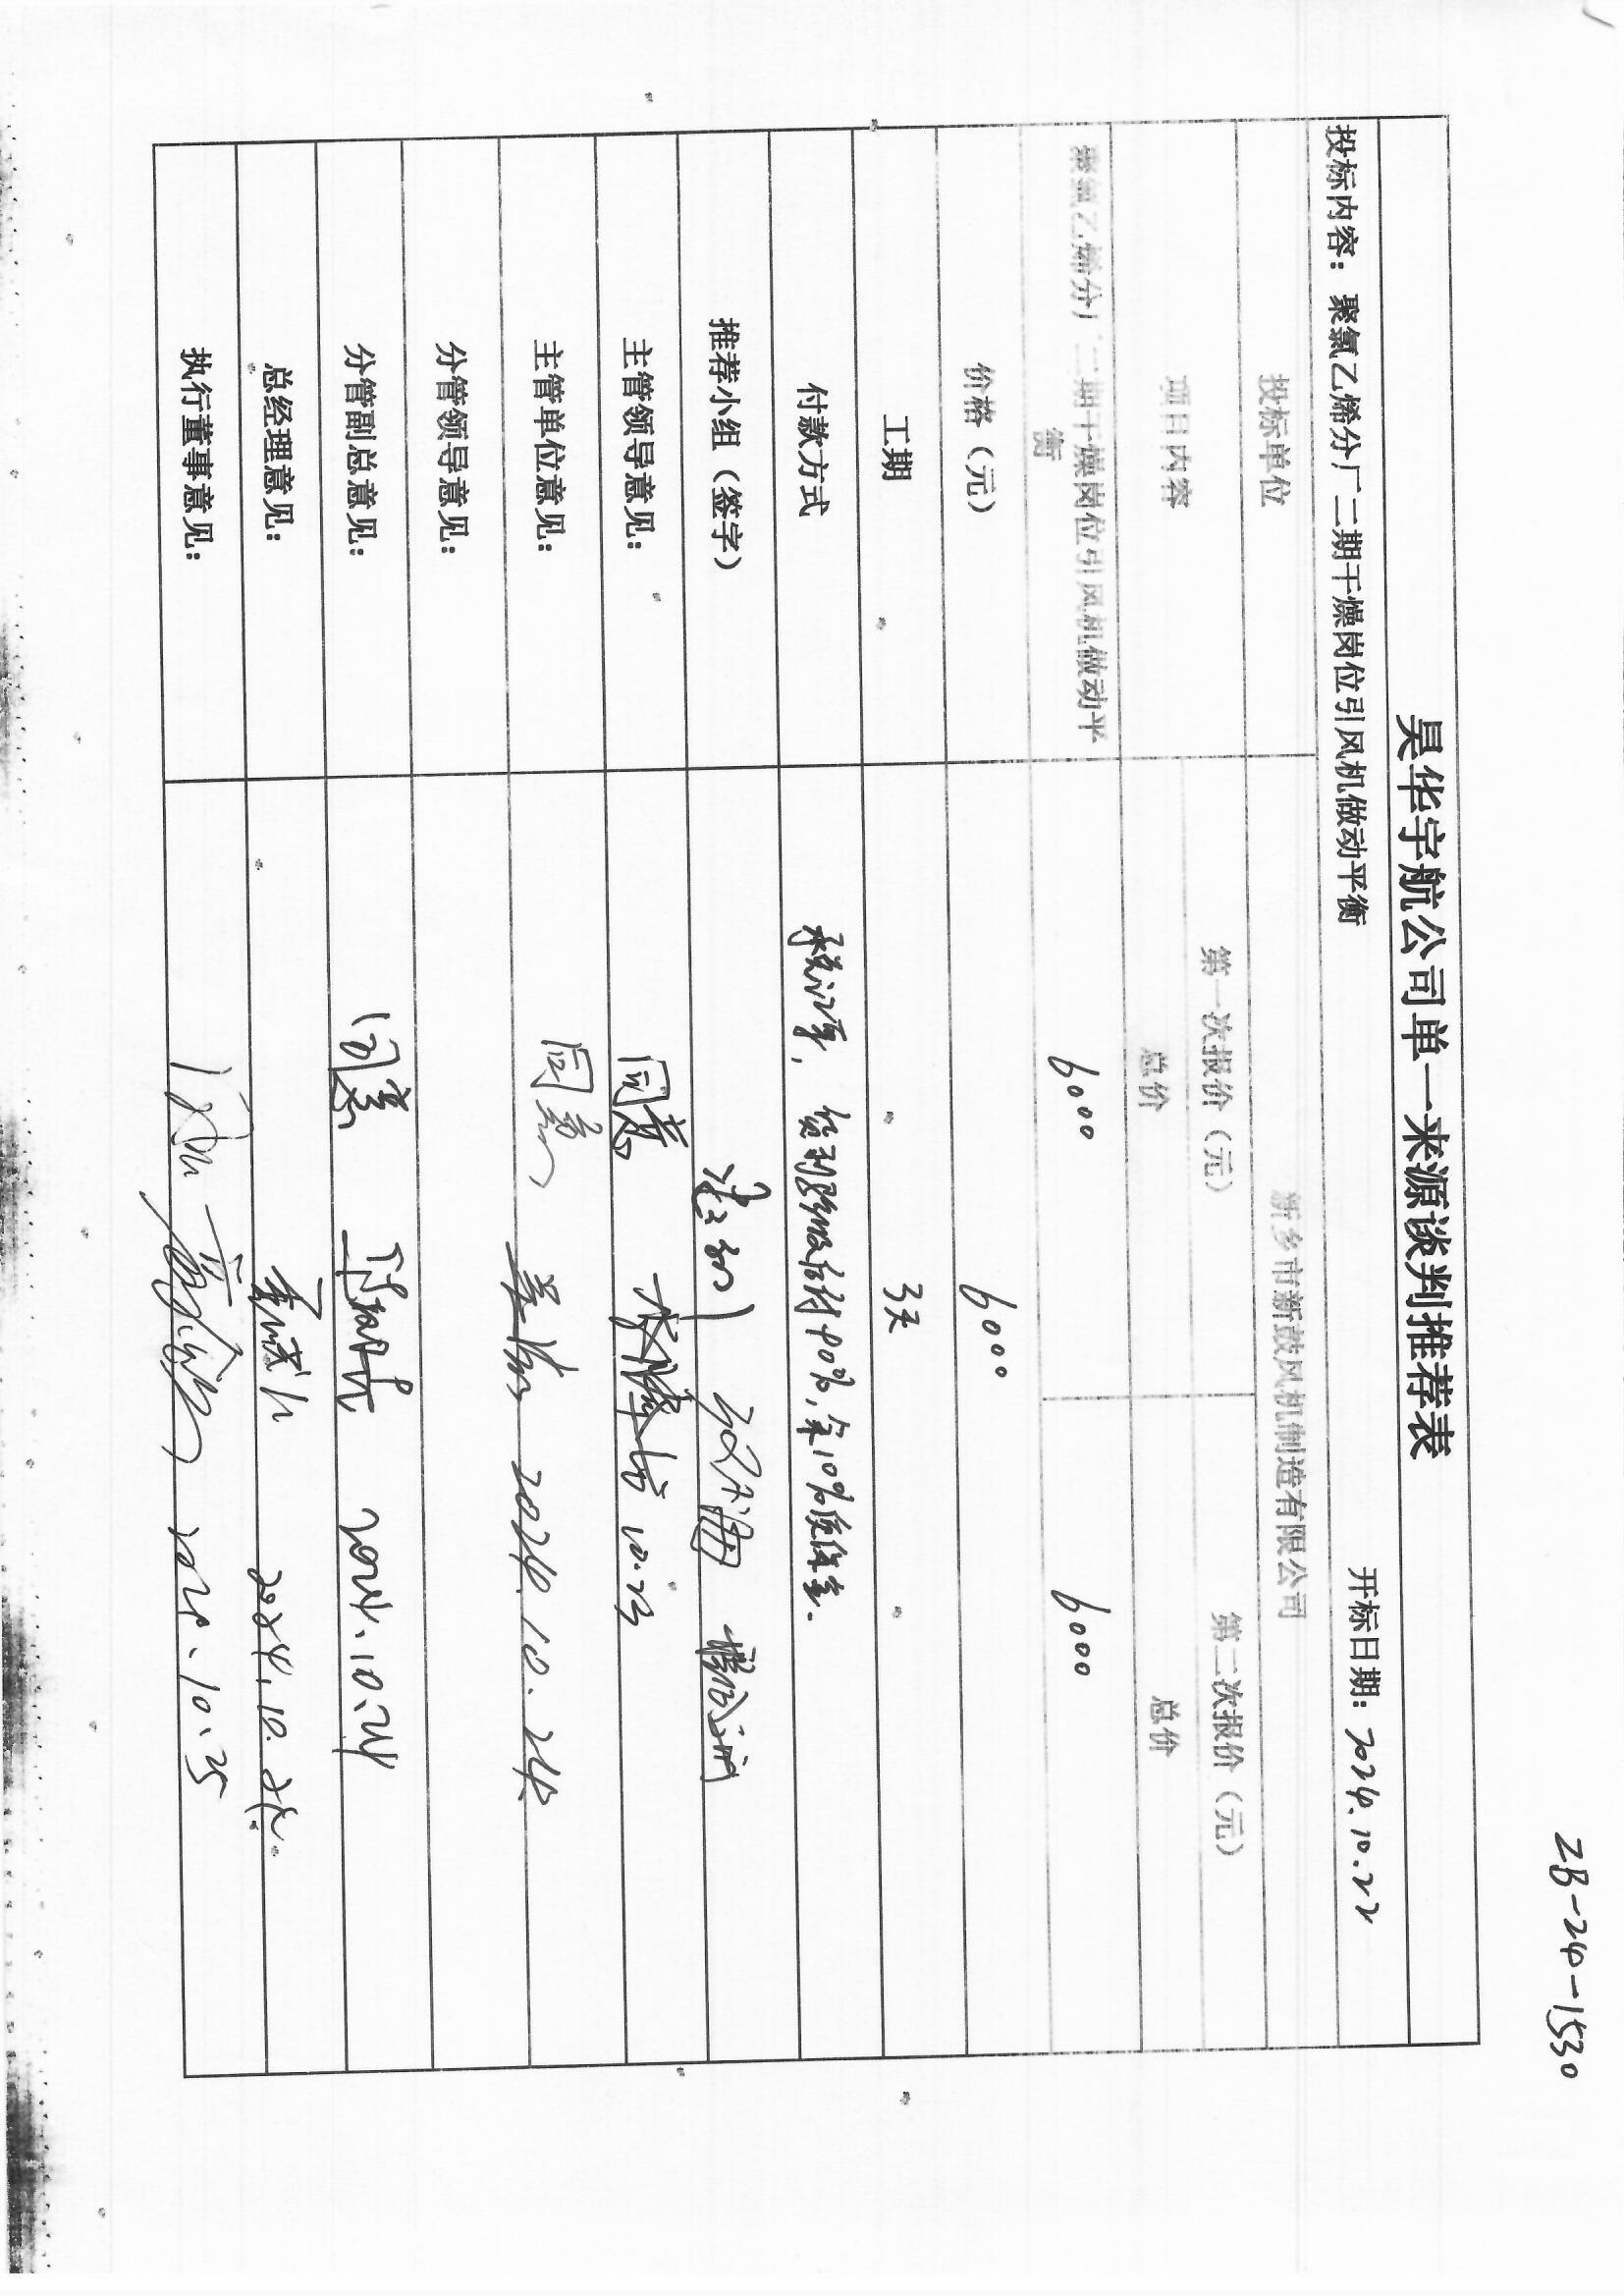 ZB-24-1530
昊华宇航公司单一来源谈判推荐表
投标内容：聚氯乙烯分厂二期干燥岗位引风机做动平衡 开标日期：2024.10.22
投标单位 新乡市新鼓风机制造有限公司
项目内容 第一次报价（元） 第二次报价（元）
总价 总价
聚氯乙烯分厂二期干燥岗位引风机做动平
衡 6000 6000
价格（元） 6000
工期 3天
付款方式 货到验收后付90%，余10%质保金.
推荐小组（签字）
主管领导意见： 同意 10.23
主管单位意见： 同意 2024.10.24
分管领导意见：
分管副总意见： 同意 2024.10.24
总经理意见： 2024.10.24.
执行董事意见： 2024.10.25